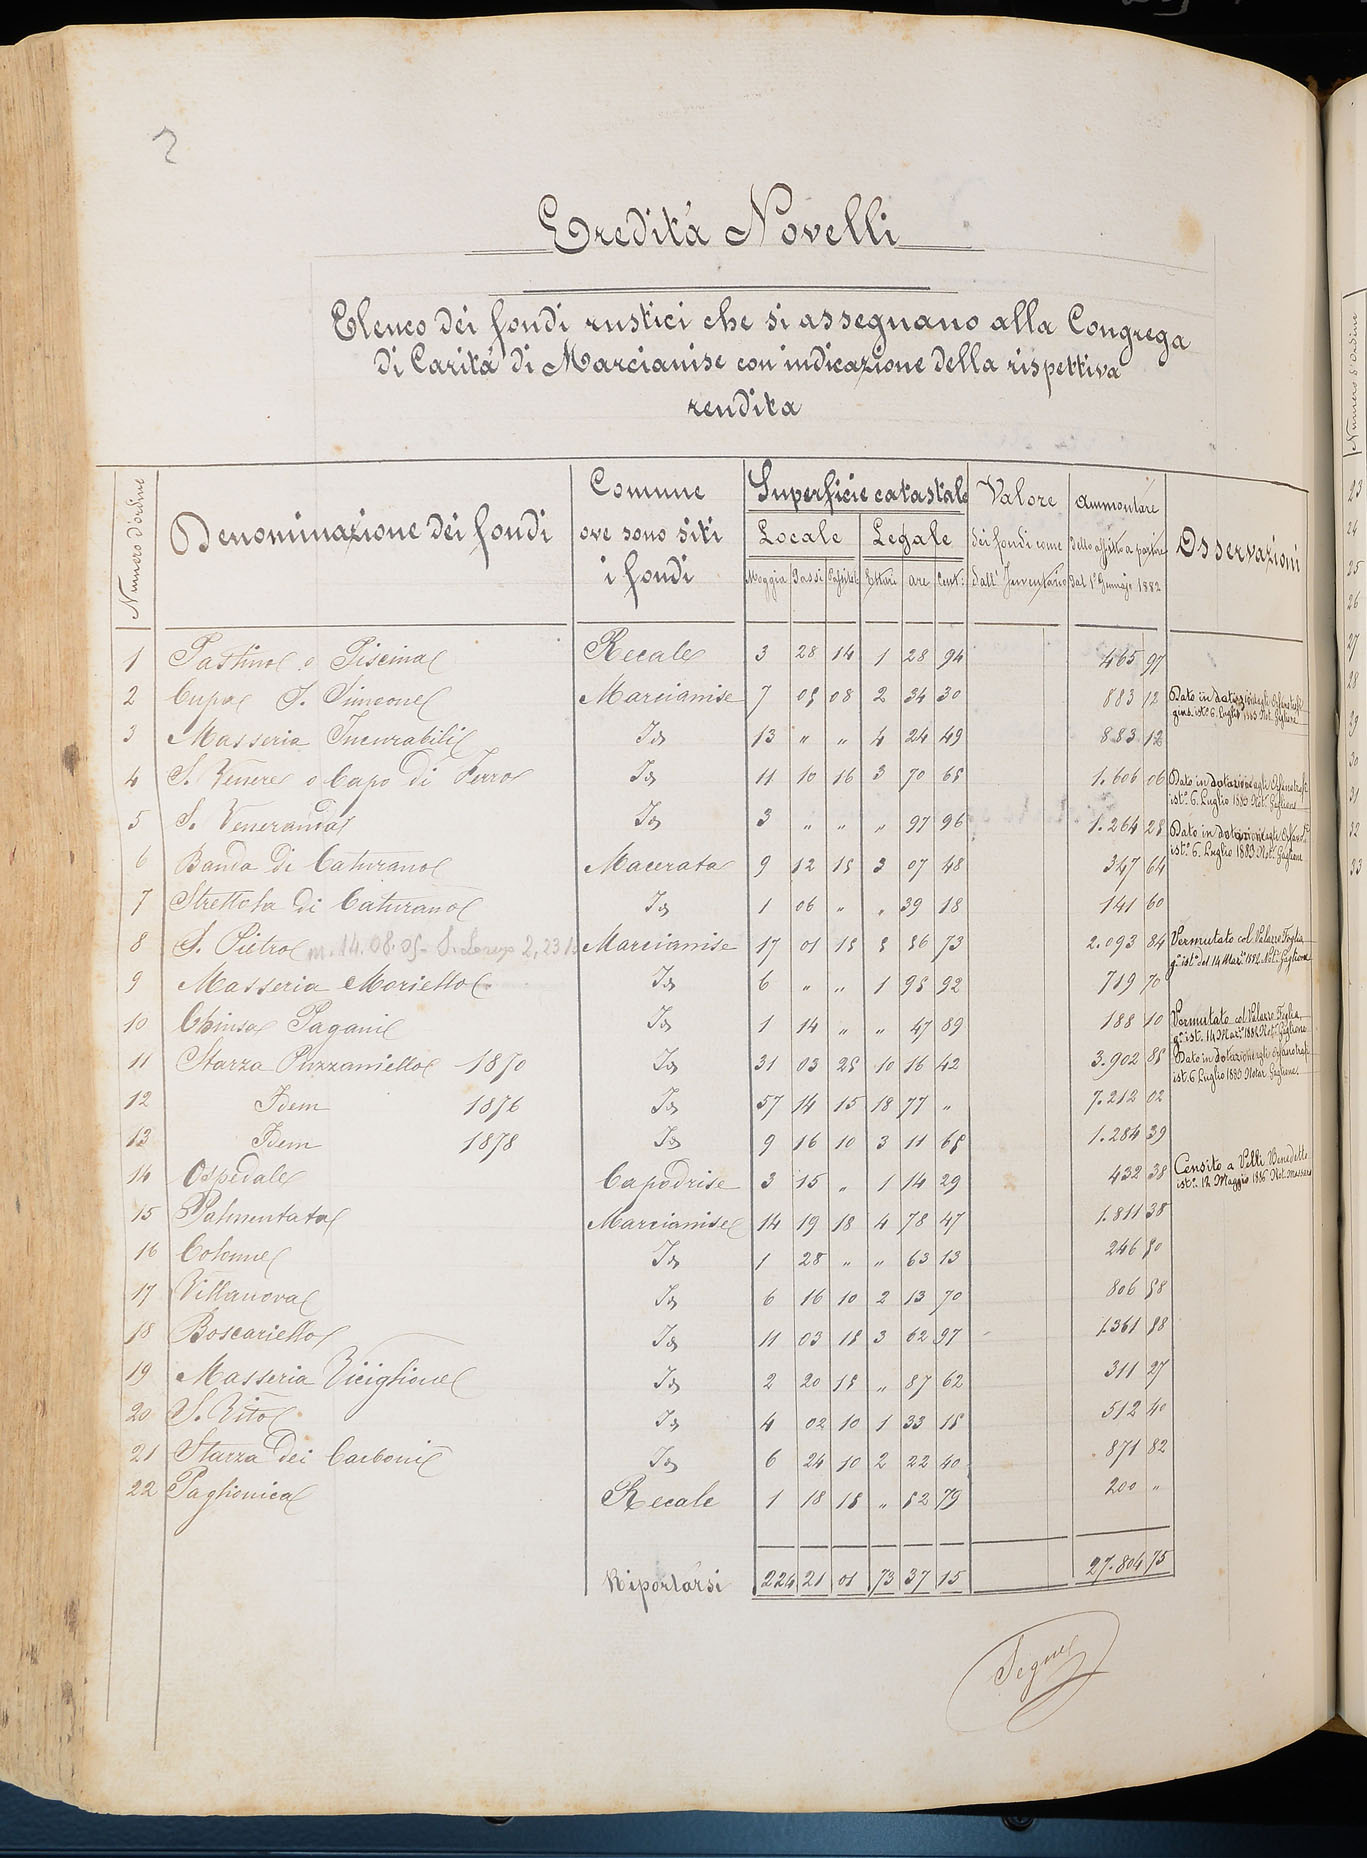 2
Eredità Novelli
Elenco dei fondi rustici che si assegnano alla Congrega
di Carità di Marcianise con indicazione della rispettiva
rendita
Numero d'ordine
Denominazione dei fondi
Comune
ove sono siti
i fondi
Superficie catastale
Locale Legale
Moggia Passi Passitelli Ettari are Cent.i
Valore
dei fondi come
dall'Inventario
Ammontare
dello affitto a partire
dal 1° Gennajo 1882
Osservazioni
1 Pastino o Piscina Recale 3 28 14 1 28 94 465 97
2 Cupa S. Simeone Marcianise 7 05 08 2 34 30 883 12 Dato in dotazione agli Orfanotrofi
ist.° 6. Luglio 1883 Not. Gaglione
3 Masseria Incurabili Id 13 " " 4 24 49 883 12
4 S. Venere o Capo di Ferro Id 11 10 16 3 70 65 1.606 06 Dato in dotazione agli Orfanotrofi
ist.° 6. Luglio 1883 Not. Gaglione
5 S. Veneranda Id 3 " " " 97 96 1.264 28 Dato in dotazione agli
ist.° 6. Luglio 1883 Not. Gaglione
6 Banda di Caturano Macerata 9 12 15 3 07 48 347 64
7 Strettola di Caturano Id 1 06 " " 39 18 141 60
8 S. Pietro m. 14.08.05 - S. Lorenzo 2, 23 Marcianise 17 01 15 5 56 73 2.093 84 Permutato col
ist.° del 14 Mar.° 1882 Not. Gaglione
9 Masseria Moriello Id 6 " " 1 95 92 719 70
10 Chiusa Pagani Id 1 14 " " 47 89 188 10 Permutato col
ist. 14 Mar.° 1882 Not. Gaglione
11 Starza Puzzaniello 1870 Id 31 03 25 10 16 42 3.902 85 Dato in dotazione agli Orfanotrofi
ist. 6 Luglio 1883 Notar Gaglione
12 Idem 1876 Id 57 14 15 18 77 " 7.212 02
13 Idem 1878 Id 9 16 10 3 11 65 1.284 39
14 Ospedale Capodrise 3 15 " 1 14 29 432 38 Censito a Velli Benedetto
ist.° 12 Maggio 1886 Not.
15 Palmentata Marcianise 14 19 18 4 78 47 1.811 38
16 Colonne Id 1 28 " " 63 13 246 50
17 Villanova Id 6 16 10 2 13 70 806 58
18 Boscariello Id 11 03 15 3 62 97 1.361 88
19 Masseria Viciglione Id 2 20 15 " 87 62 311 27
20 S. Vito Id 4 02 10 1 33 15 512 40
21 Starza dei Carboni Id 6 24 10 2 22 40 871 82
22 Paglionica Recale 1 18 15 " 52 79 200 "
Riportarsi 224 21 01 73 37 15 27.804 75
Segue
Numero d'Ordine
23
24
25
26
27
28
29
30
31
32
33